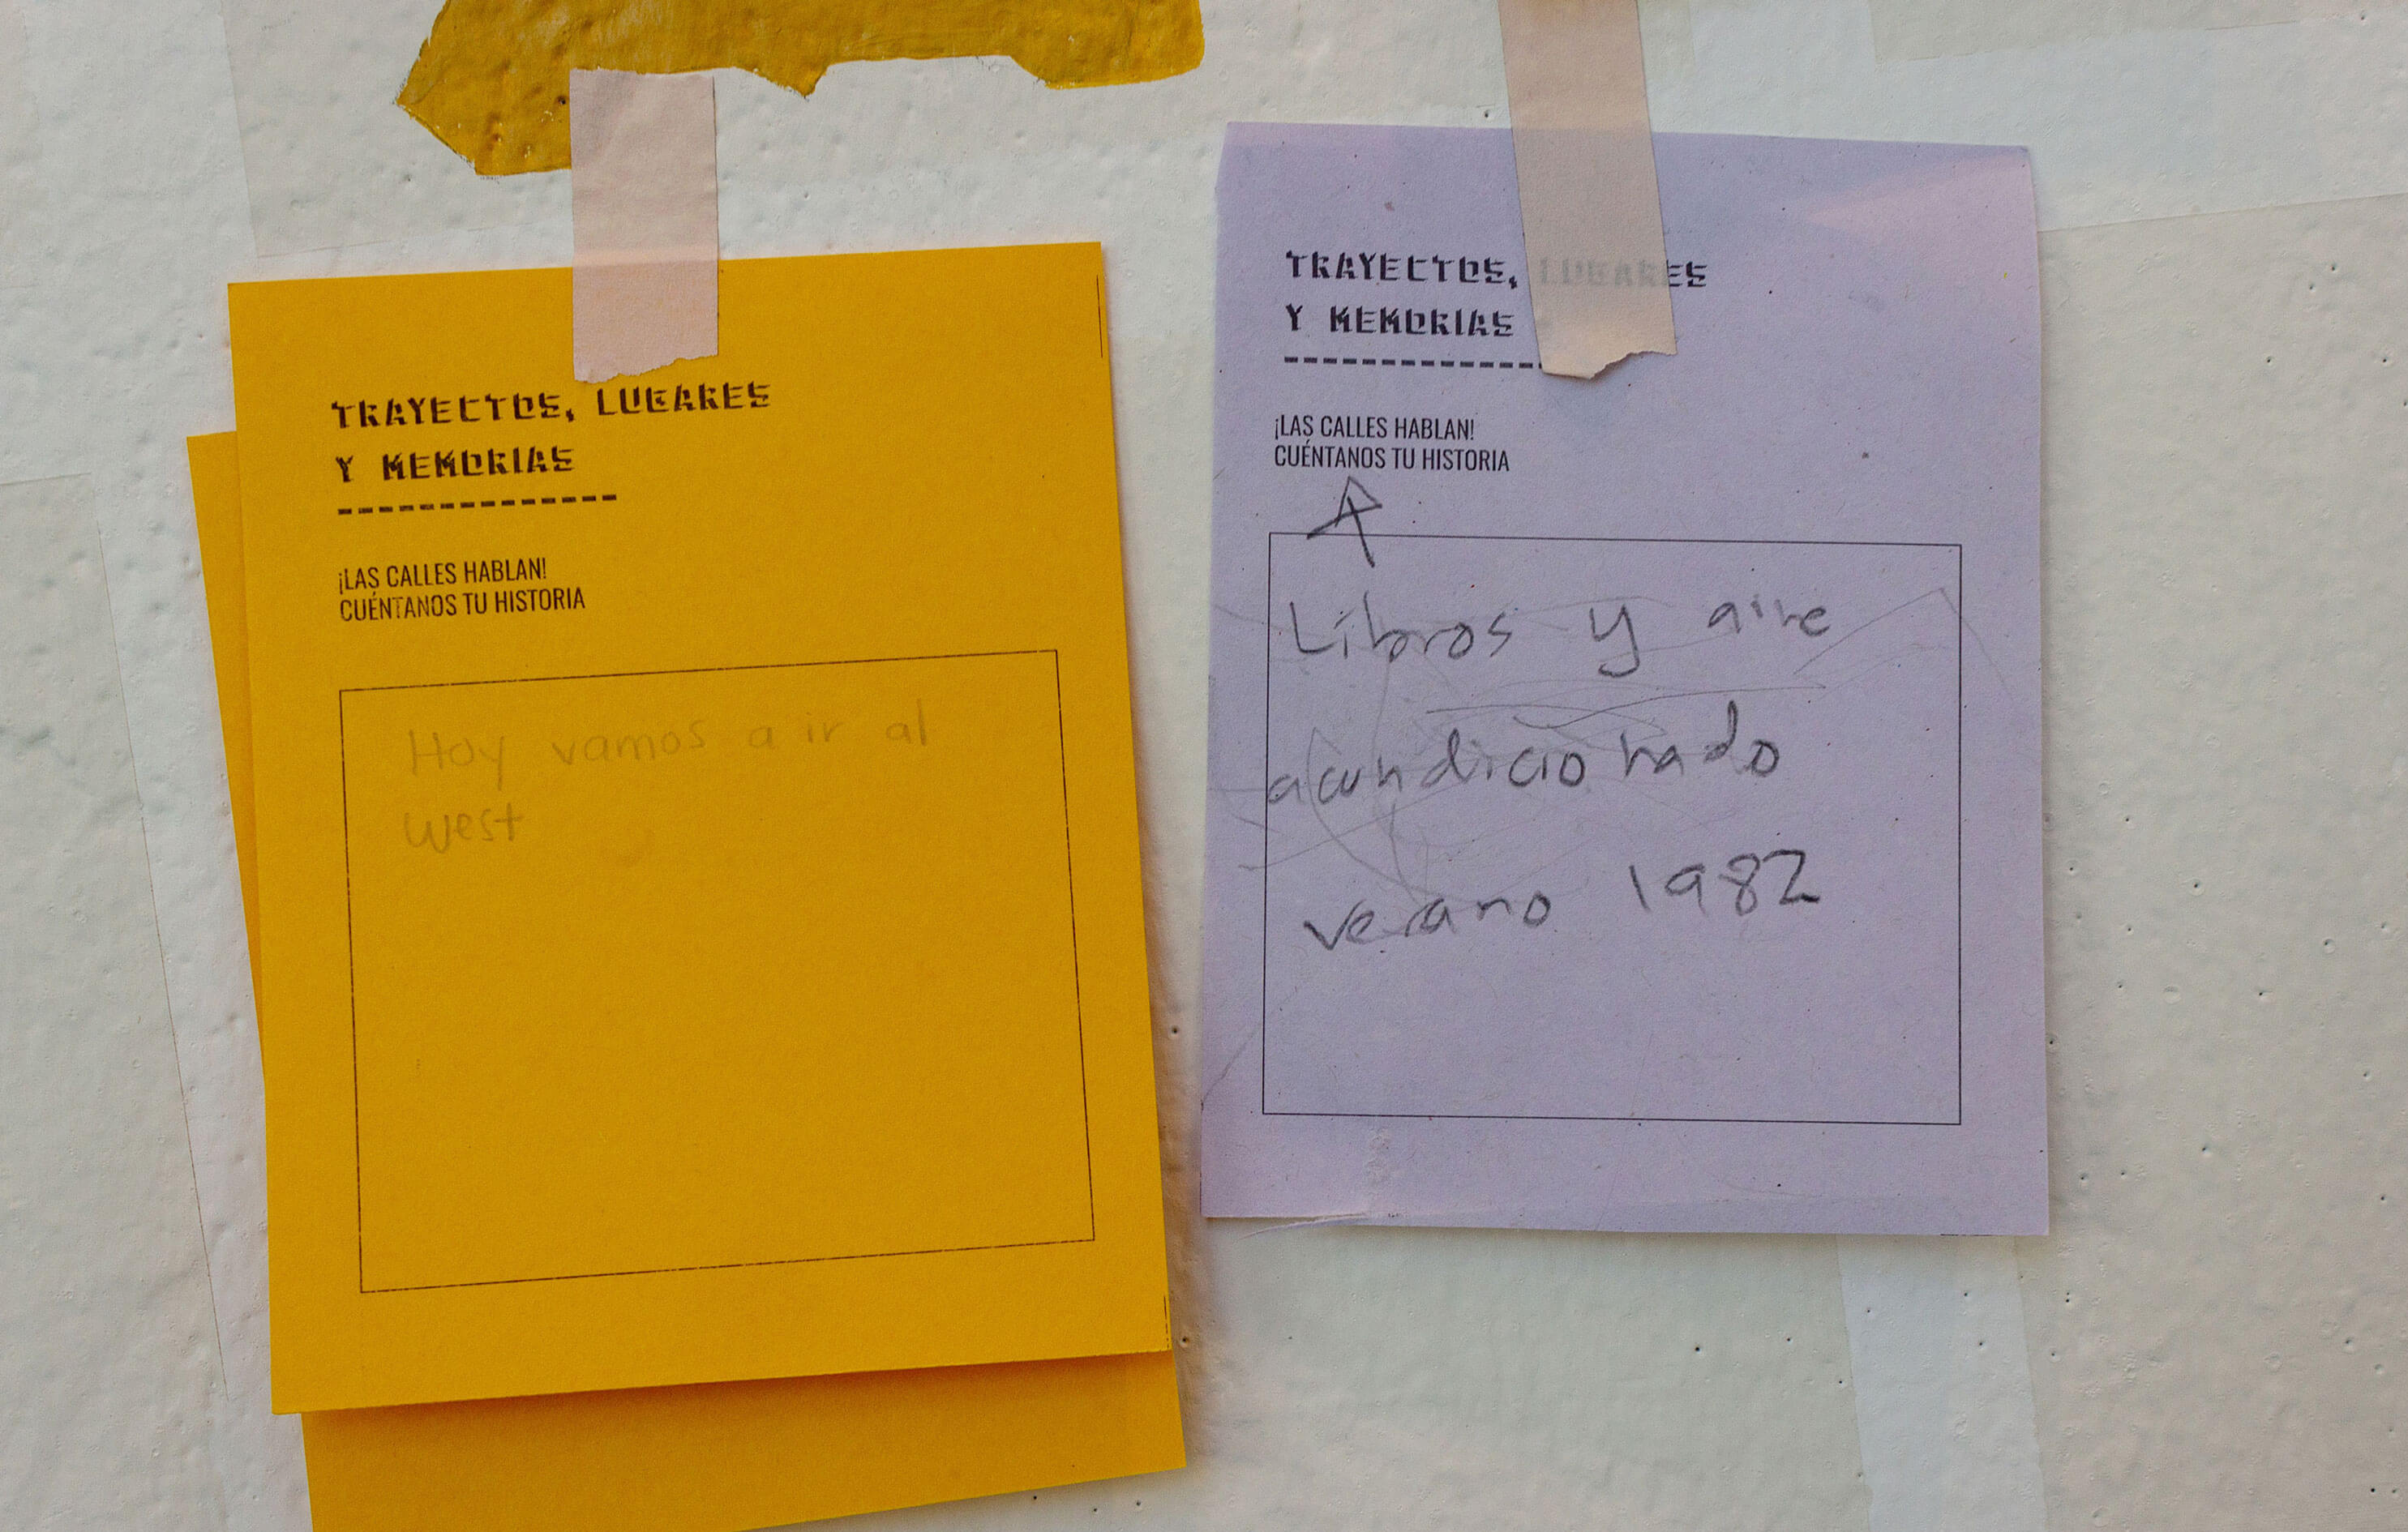 TRAYECTOS, LUGARES
Y MEMORIAS
¡LAS CALLES HABLAN!
CUÉNTANOS TU HISTORIA
Hoy vamos a ir al
west
TRAYECTOS, LUGARES
Y MEMORIAS
¡LAS CALLES HABLAN!
CUÉNTANOS TU HISTORIA
Libros y aire
acondicionado
verano 1982